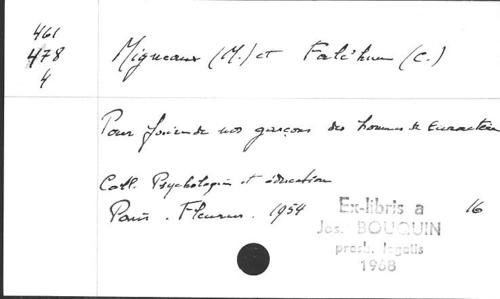 461
478
4
Migneaux (M.) et Falc'hun (C.)
Pour faire de nos garçons des hommes de caractère
Coll. Psychologie et éducation
Paris. Fleurus. 1954
16
Ex-libris a
Jos. BOUQUIN
presb. legatis
1968